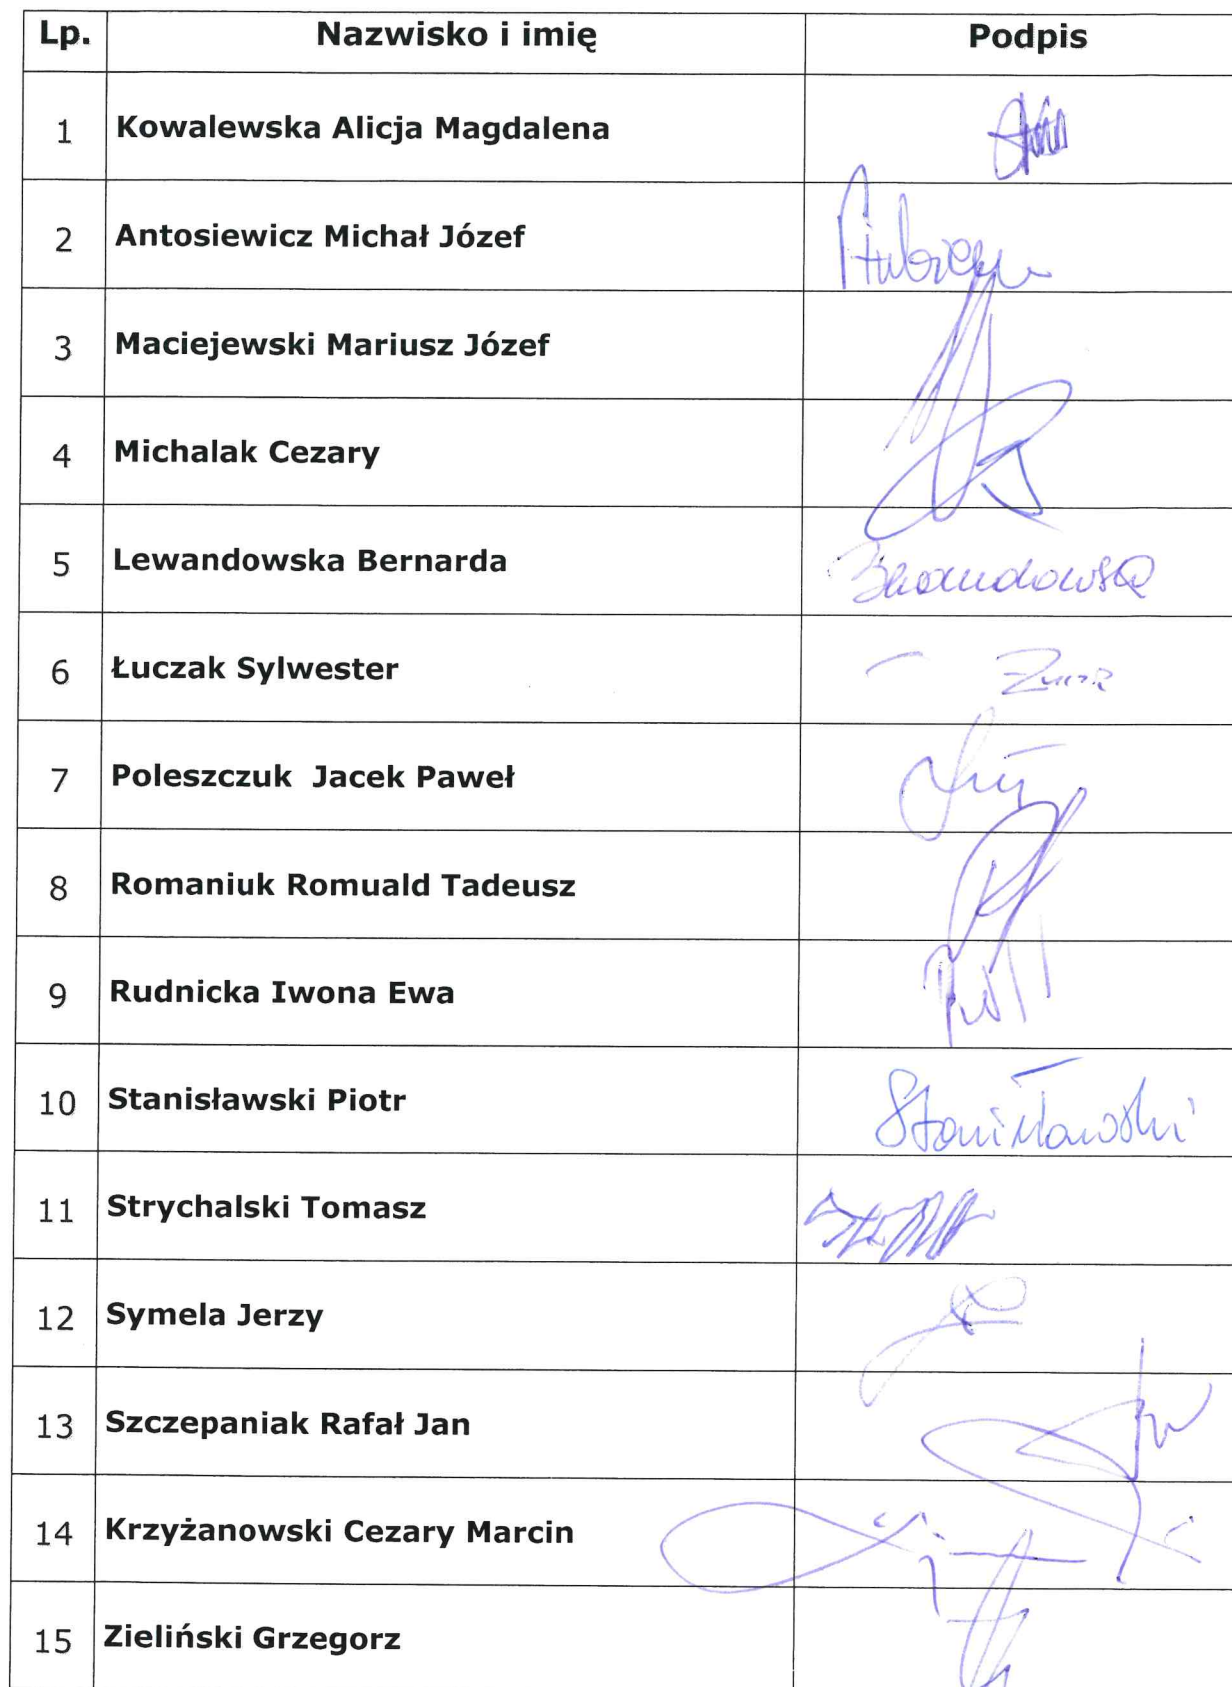 Lp. Nazwisko i imię Podpis
1 Kowalewska Alicja Magdalena
2 Antosiewicz Michał Józef
3 Maciejewski Mariusz Józef
4 Michalak Cezary
5 Lewandowska Bernarda
6 Łuczak Sylwester
7 Poleszczuk Jacek Paweł
8 Romaniuk Romuald Tadeusz
9 Rudnicka Iwona Ewa
10 Stanisławski Piotr Stanisławski
11 Strychalski Tomasz
12 Symela Jerzy
13 Szczepaniak Rafał Jan
14 Krzyżanowski Cezary Marcin
15 Zieliński Grzegorz